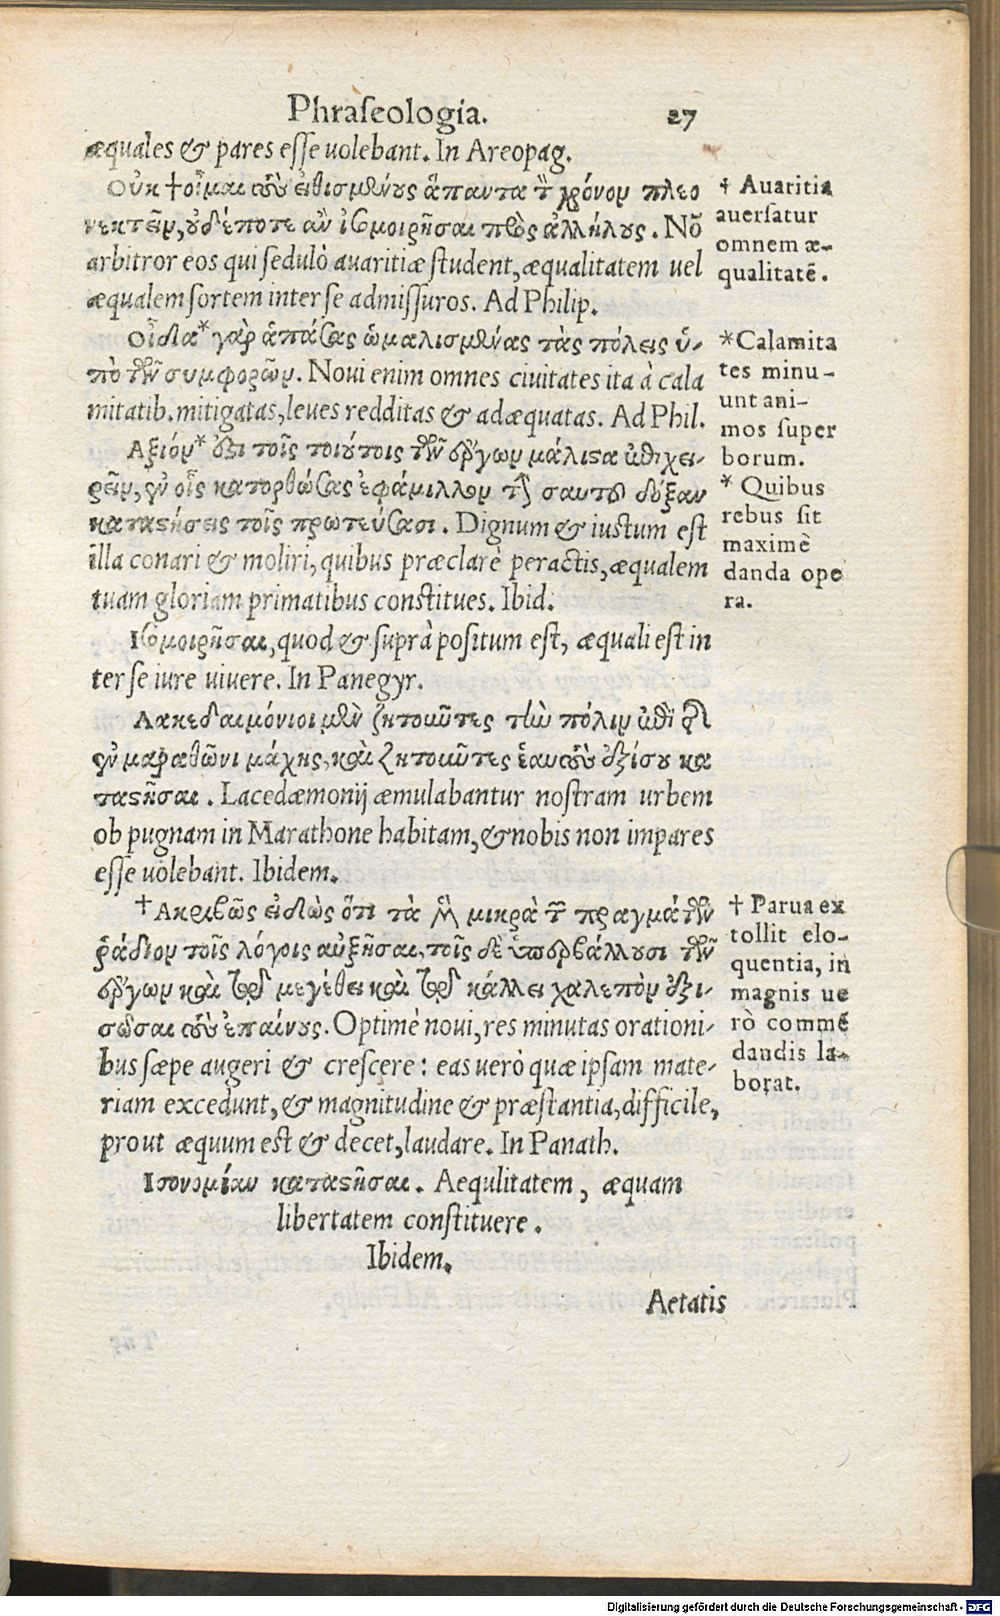 Phraſeologia. 27
æquales & pares eſſe uolebant. In Areopag.
Οὐκ †οἶμαι τοὺς εἰθισμένους ἅπαντα τὸν χρόνον πλεο
νεκτεῖν, οὐδέποτε ἂν ἰσομοιρῆσαι πρὸς ἀλλήλους. Nõ
arbitror eos qui ſedulò auaritiæ ſtudent, æqualitatem uel
æqualem ſortem inter ſe admiſſuros. Ad Philip.
† Auaritia
auerſatur
omnem æ-
qualitatẽ.
Οἶδα* γὰρ ἁπάσας ὡμαλισμένας τὰς πόλεις ὑ-
πὸ τῶν συμφορῶν. Noui enim omnes ciuitates ita à cala
mitatib. mitigatas, leues redditas & adæquatas. Ad Phil.
*Calamita
tes minu-
unt ani-
mos ſuper
borum.
Αξιόν* ὅτι τοῖς τοιούτοις τῶν ἔργων μάλιϛα ἐπιχει-
ρεῖν, ἐν οἷς κατορθώσας ἐφάμιλλον τὴν σαυτοῦ δόξαν
καταϛήσεις τοῖς πρωτεύσασι. Dignum & iustum est
illa conari & moliri, quibus præclarè peractis, æqualem
tuam gloriam primatibus constitues. Ibid.
* Quibus
rebus ſit
maximè
danda ope
ra.
Ισομοιρῆσαι, quod & ſuprà poſitum eſt, æquali eſt in
ter ſe iure uiuere. In Panegyr.
Λακεδαιμόνιοι μὲν ζητοῦντες τὴν πόλιν ἐπὶ τῆς
ἐν μαραθῶνι μάχης, καὶ ζητοῦντες ἑαυτοὺς ἐξίσου κα
ταϛῆσαι. Lacedæmonij æmulabantur noſtram urbem
ob pugnam in Marathone habitam, & nobis non impares
eſſe uolebant. Ibidem.
†Ακριβῶς εἰδὼς ὅτι τὰ μὲν μικρὰ τῶν πραγμάτων
ῥᾴδιον τοῖς λόγοις αὐξῆσαι, τοῖς δὲ ὑπερβάλλουσι τῶν
ἔργων καὶ τῷ μεγέθει καὶ τῷ κάλλει χαλεπὸν ἐξι-
σῶσαι τοὺς ἐπαίνους. Optimè noui, res minutas orationi-
bus ſæpe augeri & creſcere: eas uerò quæ ipſam mate-
riam excedunt, & magnitudine & præſtantia, difficile,
prout æquum eſt & decet, laudare. In Panath.
† Parua ex
tollit elo-
quentia, in
magnis ue
rò commẽ
dandis la-
borat.
Ισονομίαν καταϛῆσαι. Aequlitatem, æquam
libertatem conſtituere.
Ibidem.
Aetatis
Digitalisierung gefördert durch die Deutsche Forschungsgemeinschaft - DFG